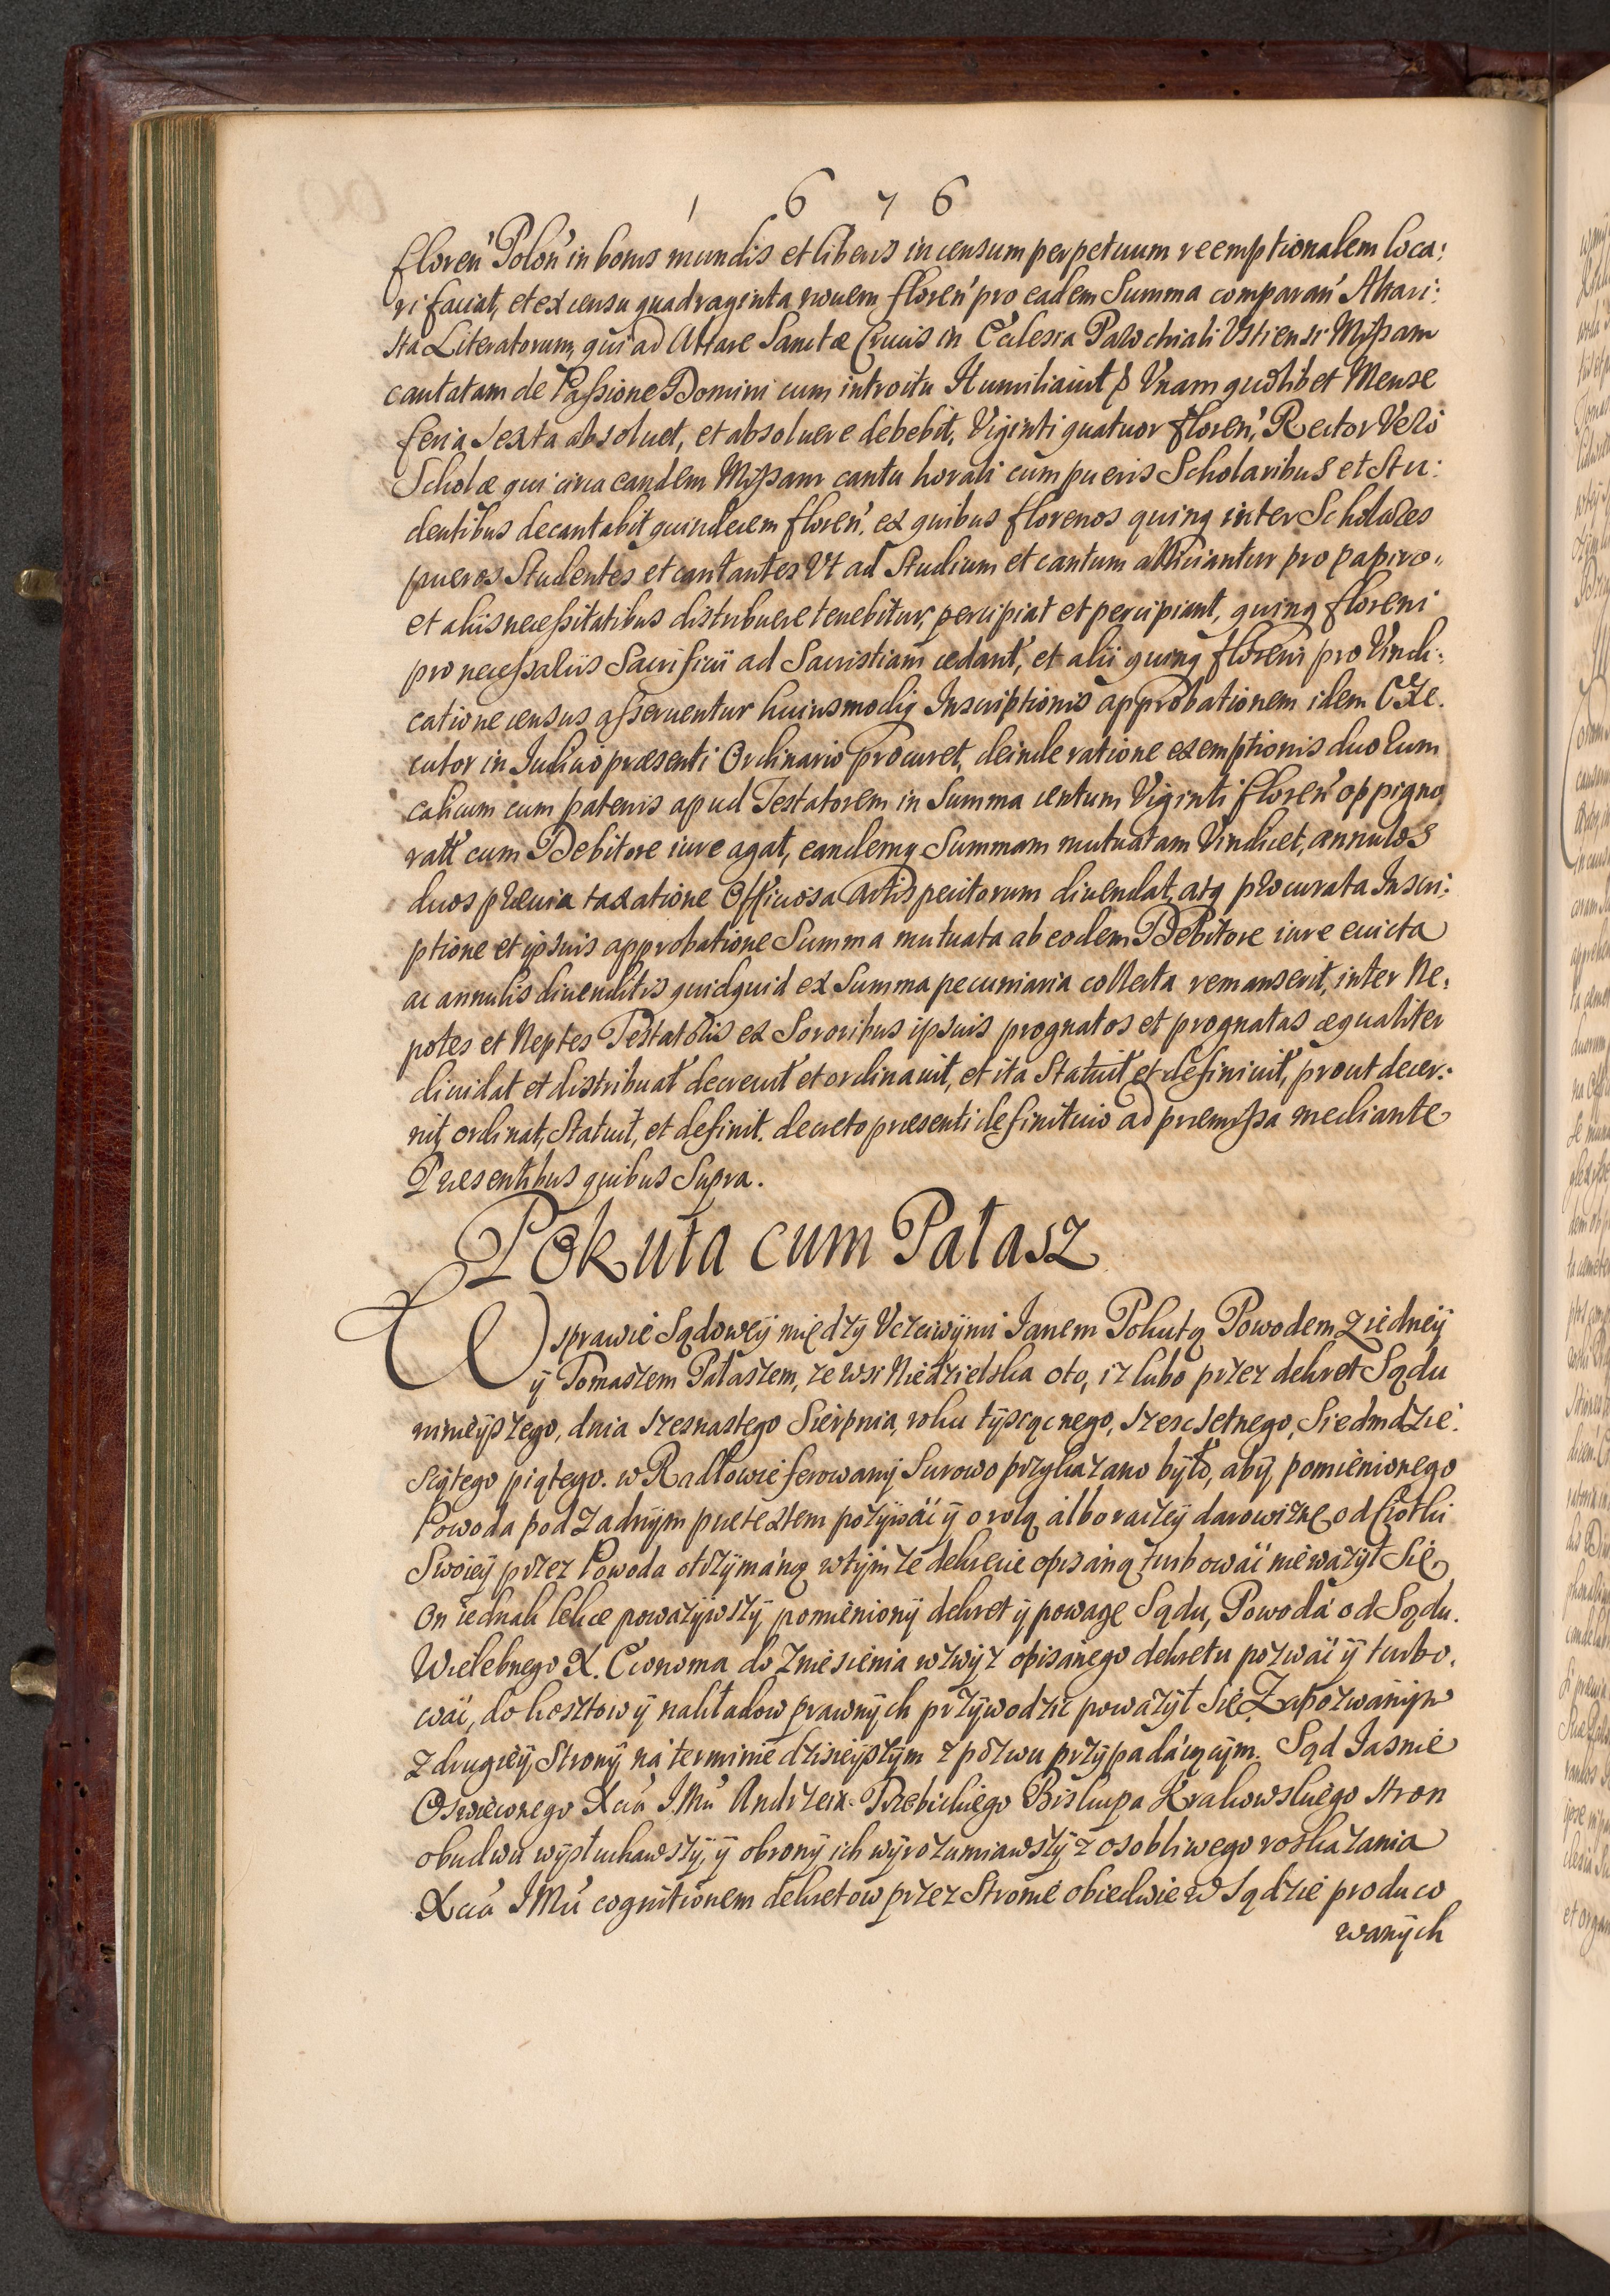 1 6 7 6
floren' Polon' in bonis mundis et liberis in censum perpetuum reemptionalem loca:
ri faciat, et ex censu quadraginta novem floren' pro eadem Summa comparan' Altari:
sta Literatorum, qui ad Altare Sanctæ Crucis in Ecclesia Parochiali Ustiensi Missam
cantatam de Passione Domini cum introitu Humiliavit Unam quolibet Mense
feria sexta absoluet, et absoluere debebit, Viginti quatuor floren', Rector Vero
Scholæ qui circa eandem Missam cantu horali cum pueris Scholaribus et Stu:
dentibus decantabit quindecem floren', ex quibus florenos quinq inter Scholares
pueros Studentes et cantantes Ut ad Studium et cantum alliciantur pro papiro,,
et aliis necessitatibus distribuere tenebitur, percipiat et percipiant, quinq floreni
pro necessariis Sacrificii ad Sacristiam cedant, et alii quinq floreni pro Vindi:
catione census asseruentur huiusmodiq Inscriptionis approbationem idem Exe.
cutor in Iudicio præsenti Ordinario procuret, deinde ratione exemptionis duorum
calicum cum patenis apud Testatorem in Summa centum Viginti floren' oppigno
ratt cum Debitore iure agat, eandemq Summam mutuatam Vindicet, annulos
duos prævia taxatione Officiosa artis peritorum divendat, atq procurata Inscri:
ptione et ipsius approbatione Summa mutuata ab eodem Debitore iure evicta
ac annulis divenditis quidquid ex Summa pecuniaria collecta remanserit, inter Ne:
potes et Neptes Testatoris ex Sororibus ipsius prognatos et prognatas æqualiter
dividat et distribuat decrevit et ordinavit, et ita Statuit et definivit, prout decer:
nit, ordinat, Statuit, et definit. decreto præsenti definitivo ad præmissa mediante
Præsentibus quibus Supra.
POkuta cum Pałasz
W sprawie Sądoweÿ międzÿ Uczciwÿmi Ianem Pokutą Powodem z iedneÿ
ÿ Tomaszem Pałaszem, ze wsi Niedzielska oto, iz lubo przez dekret Sądu
ninieÿszego, dnia szesnastego Sierpnia, roku tÿsiącnego, szescsetnego, Siedmdzie:
siątego piątego. w Radłowie ferowanÿ Surowo przÿkazano bÿło, abÿ pomienionego
Powoda pod zadnÿm pretextem pozÿwać ÿ o rolą albo raczeÿ darowiznę od Ciotki
Swoieÿ przez Powoda otrzÿmáną w tÿmze dekrecie opisáną turbować nie wazÿł się
On iednak lekce powazÿwszÿ pomienionÿ dekret ÿ powagę Sądu, Powodá od Sądu.
Wielebnego X. Ekonoma do zniesienia wzwÿz opisánego dekretu pozwać ÿ turbo,
wać, do kosztow ÿ nakładow prawnÿch przÿwodzic powazÿł się. Zapozwanÿm
z drugieÿ Stronÿ ná terminie dzisieÿszÿm z pozwu przÿpadáiącÿm. Sąd Iasnie
Oswieconego Xcia' IMci' Andrzeia Trzebickiego Biskupa Krakowskiego stron
obudwu wÿsłuchawszÿ, ÿ obronÿ ich wÿrozumiawszÿ z osobliwego roskazania
Xcia' IMci' cognitionem dekretow przez Stronie obiedwie w Sądzie produco
wanÿch